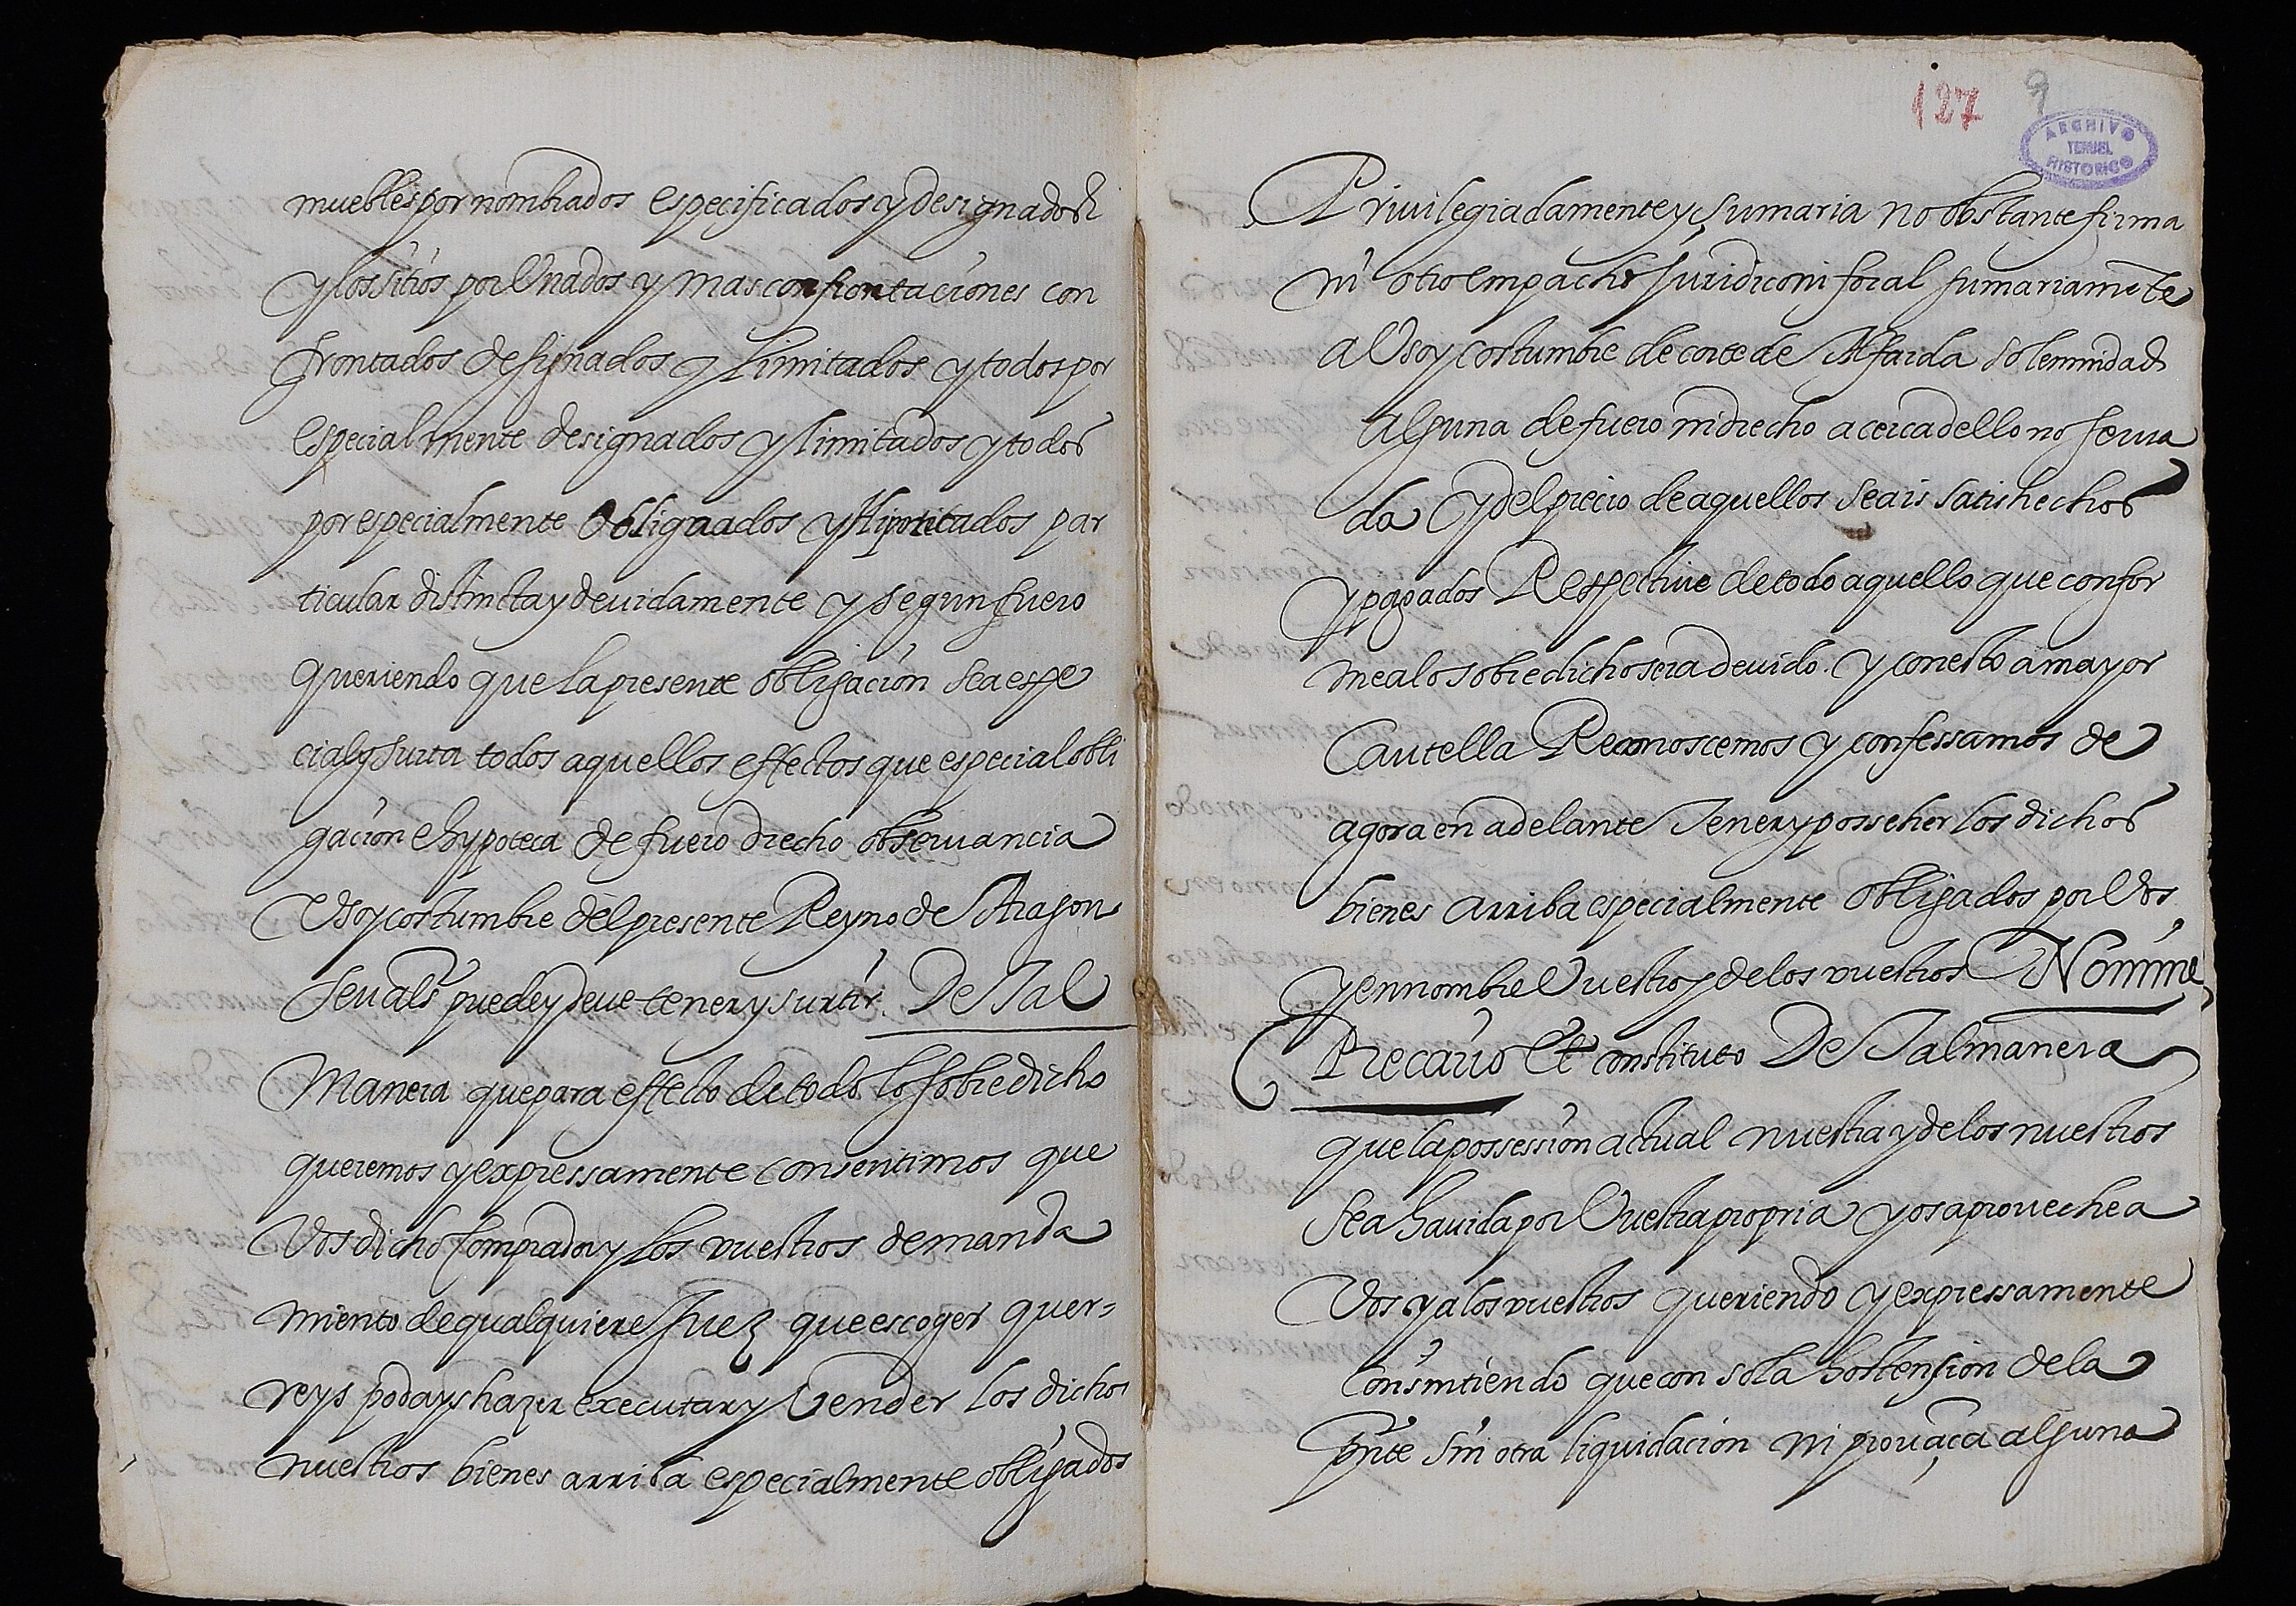 muebles por nombrados especificados y designados
y los sitios por Unados y mas confrontaciones con
frontados designados y limitados y todos por
especialmente designados y limitados y todos
por especialmente obligados y Hipotecados par
ticular distincta y devidamente y segun fuero
queriendo que la presente obligación sea espe
cial y surta todos aquellos effectos que especial obli
gación e hypoteca de fuero drecho observancia
Uso y costumbre del presente Reyno de Aragon
seu als puede y deve tener y surtir. De Tal
Manera que para effecto de todo lo sobredicho
queremos y expressamente consentimos que
Vos dicho comprador y los vuestros demanda
miento de qualquiere Juez que escoger quer-
reys podays hazer executar y Vender los dichos
nuestros bienes arriba especialmente obligados
127 9
ARCHIVO
TERUEL
HISTORICO
Privilegiadamente y sumaria no obstante firma
ni otro empacho Juridico ni foral sumariamẽte
a Uso y costumbre de corte de Alfarda solemnidad
alguna de fuero ni drecho acerca dello no serva
da y del precio de aquellos seais satishechos
y pagados Respective de todo aquello que confor
me a lo sobredicho sera devido. y con esto a mayor
Cautella Reconoscemos y confessamos de
agora en adelante Tener y posseher los dichos
bienes arriba especialmente obligados por Vos
y en nombre Vuestro y de los vuestros Nomine
Precario Et constituto De Tal manera
que la possession actual nuestra y de los nuestros
sea havida por Vuestra propria y os aproveche a
Vos y a los vuestros queriendo y expressamente
consintiendo que con sola hostension de la
pñte sin otra liquidación ni provãça alguna